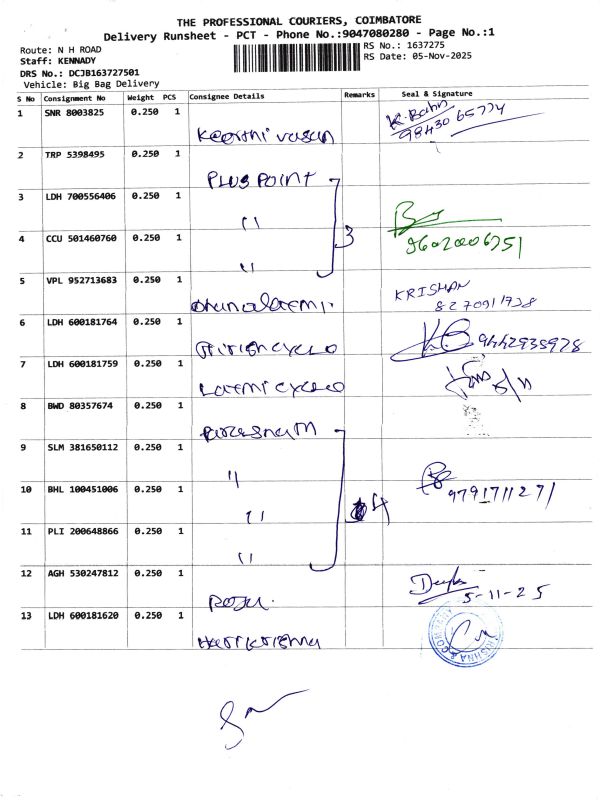 THE PROFESSIONAL COURIERS, COIMBATORE
Delivery Runsheet - PCT - Phone No.:9047080280 - Page No.:1
Route: N H ROAD
RS No.: 1637275
Staff: KENNADY
RS Date: 05-Nov-2025
DRS No.: DCJB163727501
Vehicle: Big Bag Delivery
S No Consignment No Weight PCS Consignee Details Remarks Seal & Signature
1 SNR 8003825 0.250 1 Keerthi vasan
2 TRP 5398495 0.250 1 PLUS POINT
3 LDH 700556406 0.250 1 "
3
4 CCU 501460760 0.250 1 "
5 VPL 952713683 0.250 1 KRISHAN
6 LDH 600181764 0.250 1 9442938928
7 LDH 600181759 0.250 1 Laxmi cycle
8 BWD 80357674 0.250 1
9 SLM 381650112 0.250 1 "
10 BHL 100451006 0.250 1 " 4 9791711271
11 PLI 200648866 0.250 1 "
12 AGH 530247812 0.250 1 5-11-25
13 LDH 600181620 0.250 1 Harikrishna